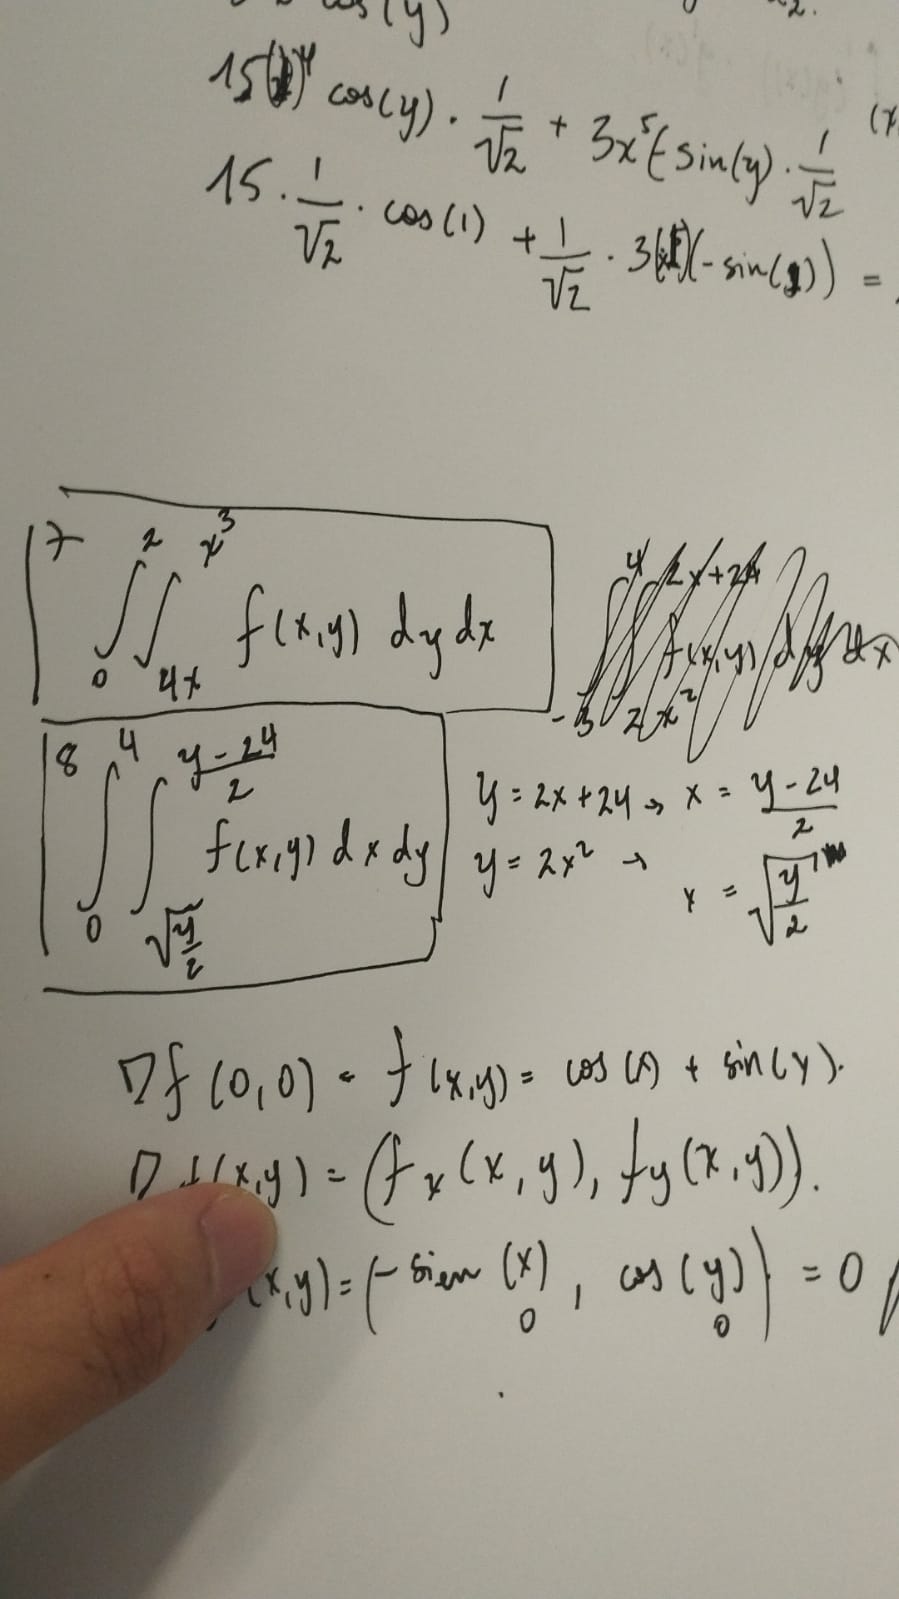 cos(y) 2.
15( )⁴ cos(y) · 1/√2 + 3x⁵(-sin(y) · 1/√2
15 · 1/√2 · cos(1) + 1/√2 · 3( )(-sin(1)) =
7 ∫₀² ∫₄ₓ^x³ f(x,y) dy dx
8 ∫₀⁴ ∫_√(y/2)^((y-24)/2) f(x,y) dx dy
y = 2x+24 → x = (y-24)/2
y = 2x² → x = √(y/2)
∇f(0,0) = f(x,y) = cos(x) + sin(y).
∇f(x,y) = (fx(x,y), fy(x,y)).
(x,y) = (-sien(x), cos(y)) = 0
0 0